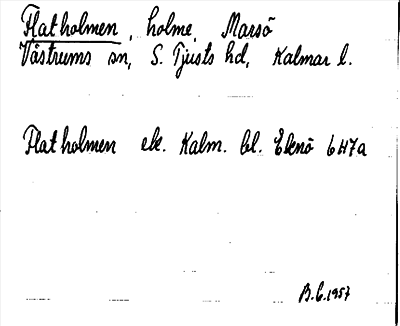 Flatholmen, holme, Marsö
Västrums sn, S. Tjusts hd, Kalmar l.
Flatholmen ek. Kalm. bl. Eknö 6H7a
B.C. 1957